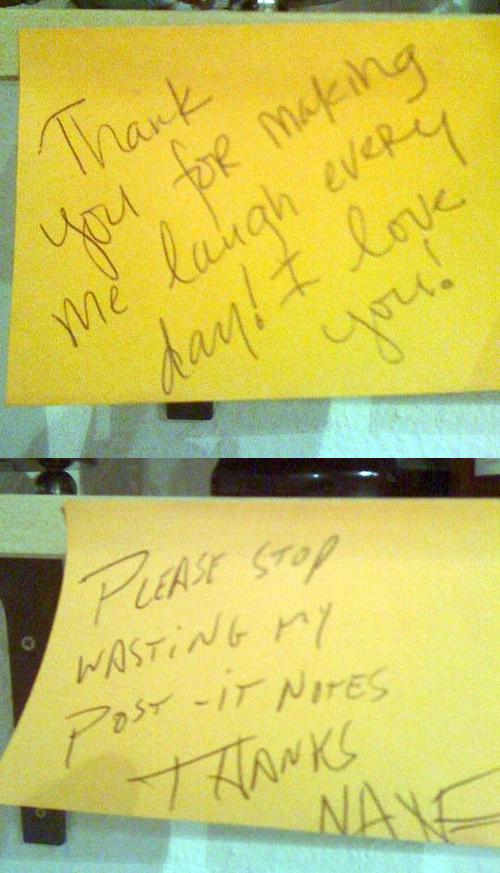 Thank
you foR making
me laugh eveRy
day! I love
you!
PLEASE STOP
WASTiNG MY
POST-iT NOTES
THANKS